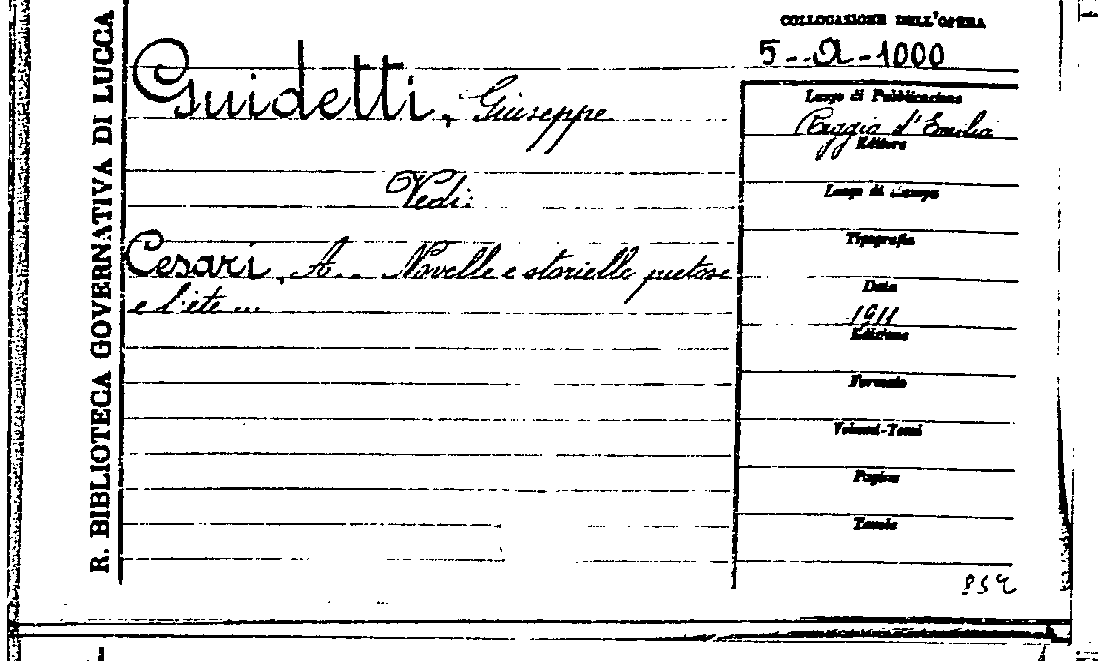 R. BIBLIOTECA GOVERNATIVA DI LUCCA
COLLOCAZIONE DELL'OPERA
5--A-1000
Guidetti, Giuseppe
Vedi:
Cesari, A.. Novelle e storielle pietose
e liete ...
Luogo di Pubblicazione
Reggio d'Emilia
Editore
Luogo di Stampa
Tipografia
Data
1911
Edizione
Formato
Volumi-Tomi
Pagine
Tavole